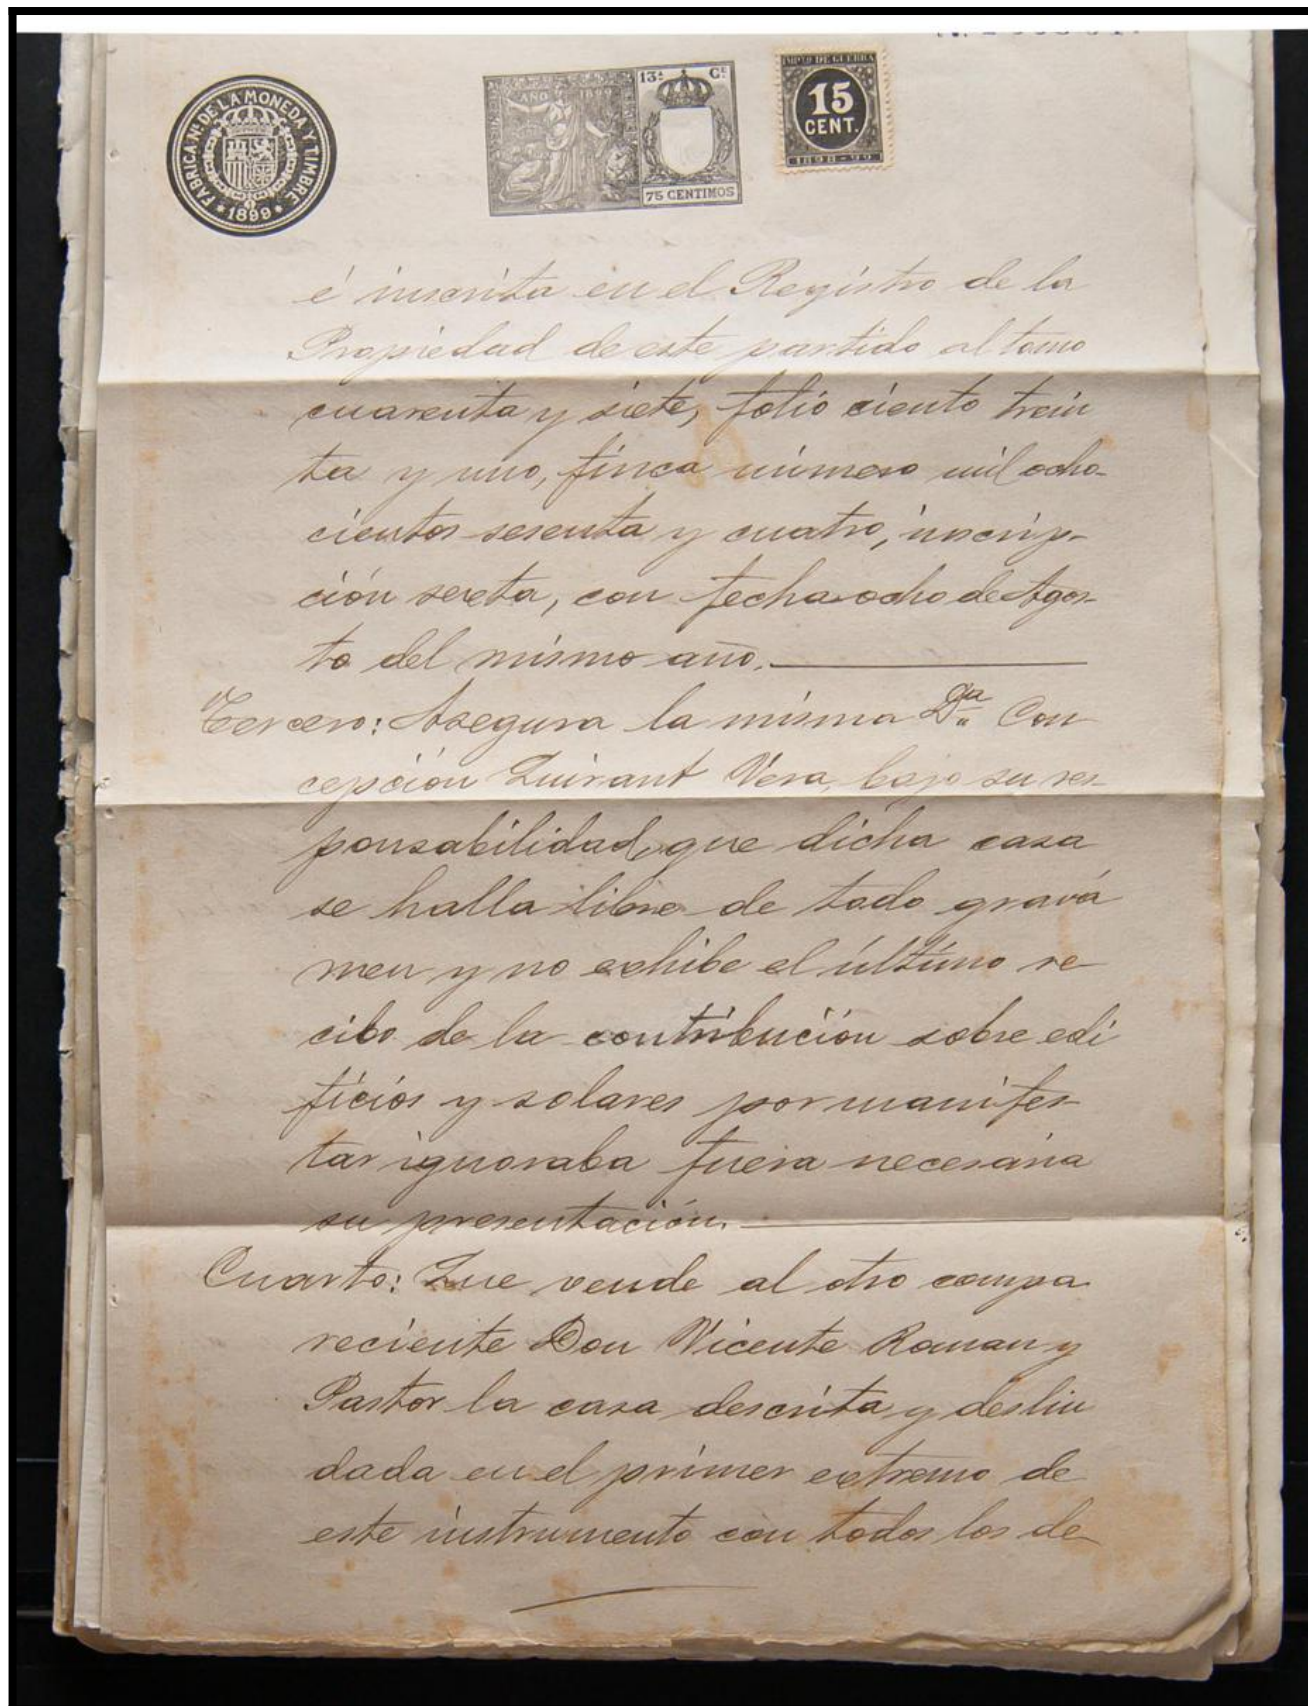 FABRICA Nl. DE LA MONEDA Y TIMBRE
* 1899 *
AÑO 1899
13ª Cᴱ
75 CENTIMOS
IMPTO DE GUERRA
15
CENT.
1898-99
é inscrita en el Registro de la
Propiedad de este partido al tomo
cuarenta y siete, folio ciento trein
ta y uno, finca número mil ocho-
cientos sesenta y cuatro, inscrip-
ción sexta, con fecha ocho de Agos-
to del mismo año.
Tercero: Asegura la misma Dª Con
cepción Quirant Vera, bajo su res-
ponsabilidad, que dicha casa
se halla libre de todo gravá
men y no exhibe el último re-
cibo de la contribución sobre edi
ficios y solares por manifes-
tar ignoraba fuera necesaria
su presentación.
Cuarto: Que vende al otro compa-
reciente Don Vicente Roman y
Pastor la casa descrita y deslin
dada en el primer extremo de
este instrumento con todos los de-